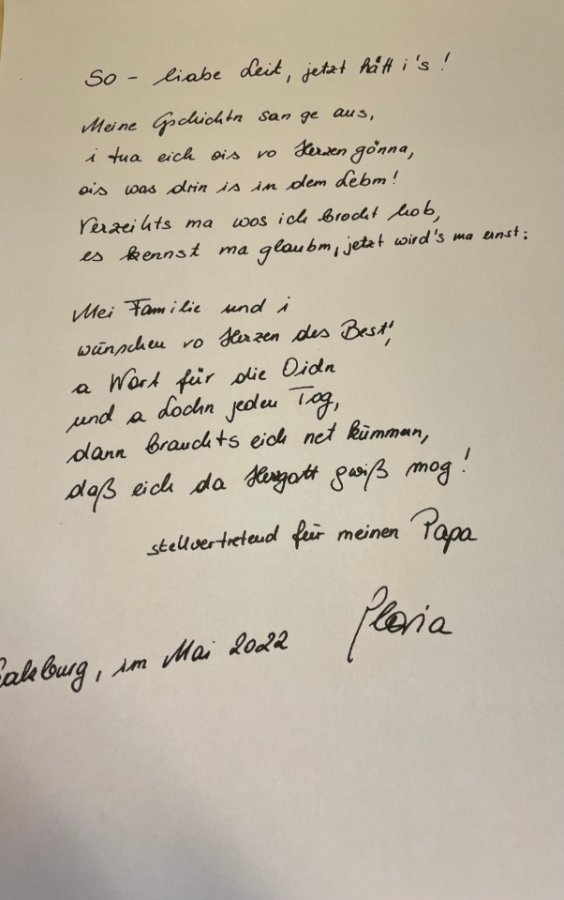 So - liabe Leit, jetzt hått i's!
Meine Gschichtn san ge aus,
i tua eich ois vo Herzen gönna,
ois was drin is in dem Lebm!
Verzeihts ma wos ich brocht hob,
es kennst ma glaubm, jetzt wird's ma ernst:
Mei Familie und i
wünschen vo Herzen des Best',
a Wort für die Oidn
und a Lochn jeden Tog,
dann brauchts eich net kümman,
daß eich da Hergott gwiß mog!
stellvertretend für meinen Papa
Salzburg, im Mai 2022